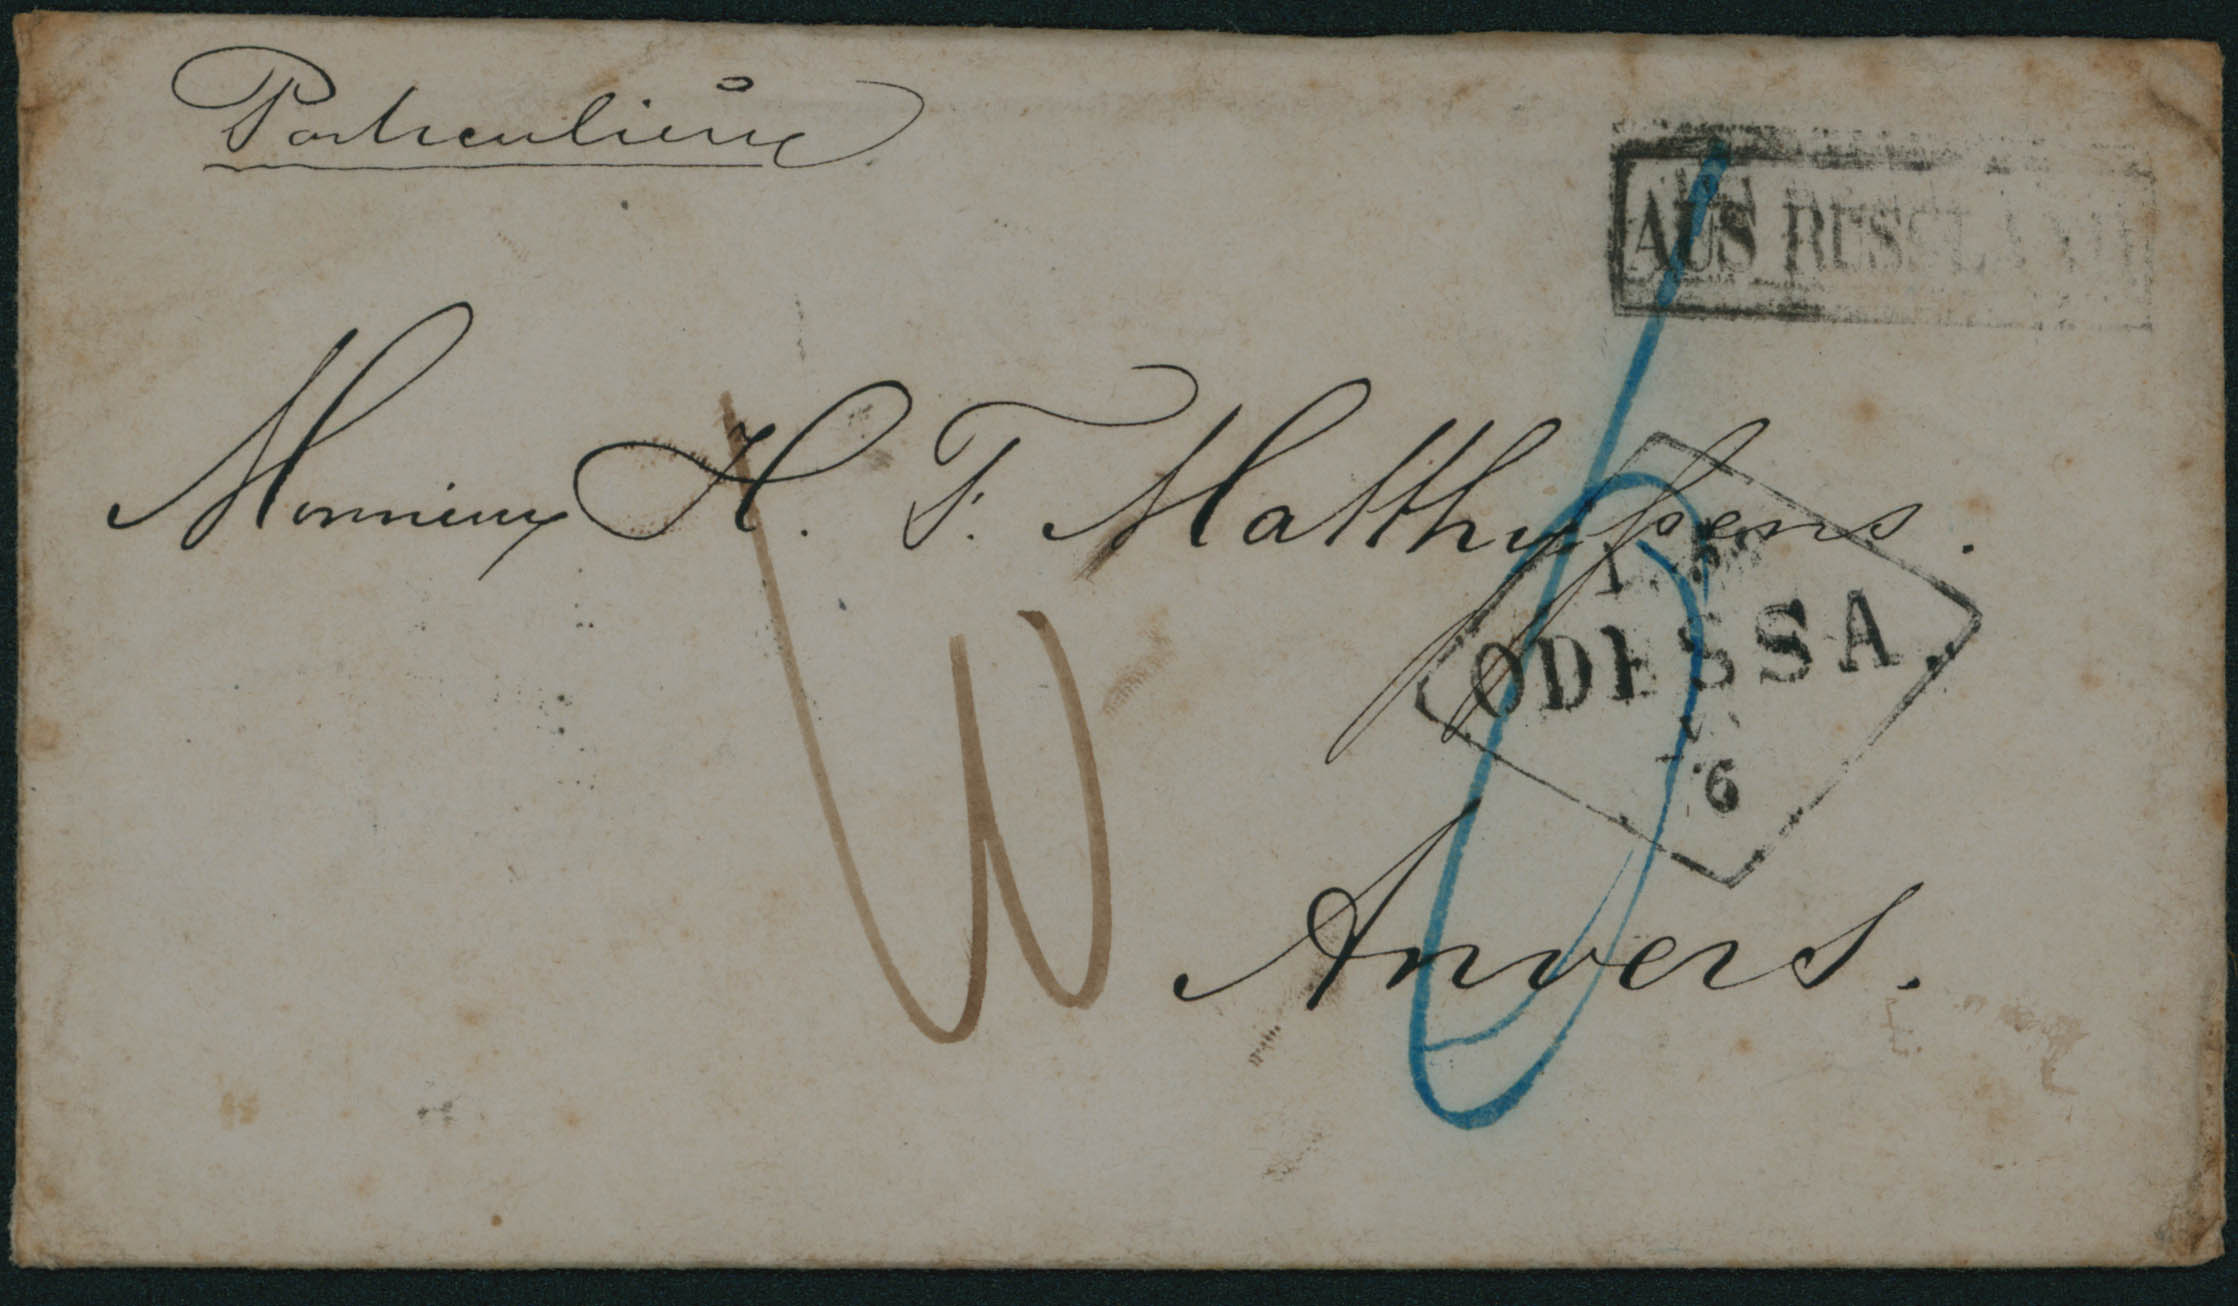 Particulière
AUS RUSSLAND
Monsieur H. F. Matthyssens.
ODESSA
6
Anvers.